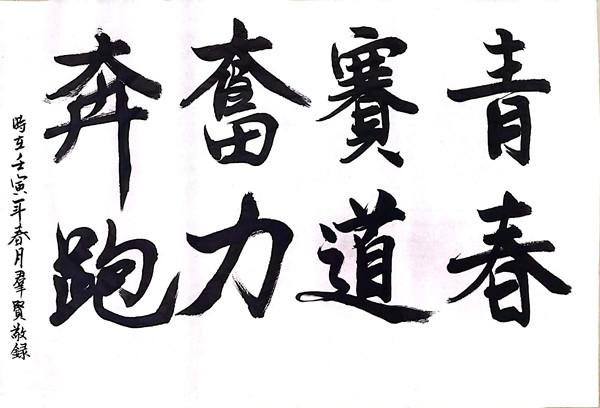 青春
賽道
奮力
奔跑
時在壬寅年春月羣賢敬録